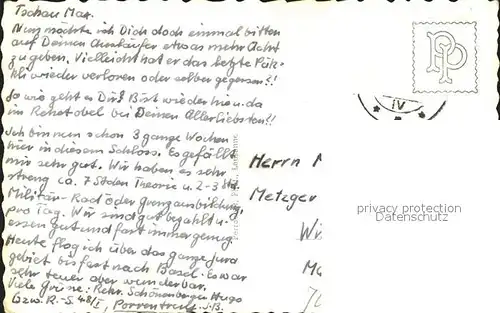 Tschau Max.
Nun möchte ich Dich doch einmal bitten
auf Deinen Ausläufer etwas mehr Acht
zu geben. Vielleicht hat er das letzte Päk-
kli wieder verloren oder selber gegessen?!
So wie geht es Dir? Bist wieder hie u. da
im Rehetobel bei Deinen Allerliebsten!!
Ich bin nun schon 3 ganze Wochen
hier in diesem Schloss. Es gefällt
mir sehr gut. Wir haben es sehr
streng ca. 7 Stden Theorie u. 2-3 Std.
Militär-Rad oder Gungausbildung
pro Tag. Wir sind gut bezahlt u.
essen gut und fast immer genug.
Heute flog ich über das ganze Jura
gebiet bis fast nach Basel. Es war
sehr teuer aber wunderbar.
Viele Grüsse: Rekr. Schönenberger Hugo
Gzw. R.-S. 48/I, Porrentruy. J.B.
PP
IV
Herrn M
Metzger
Wi
Ma
privacy protection
Datenschutz